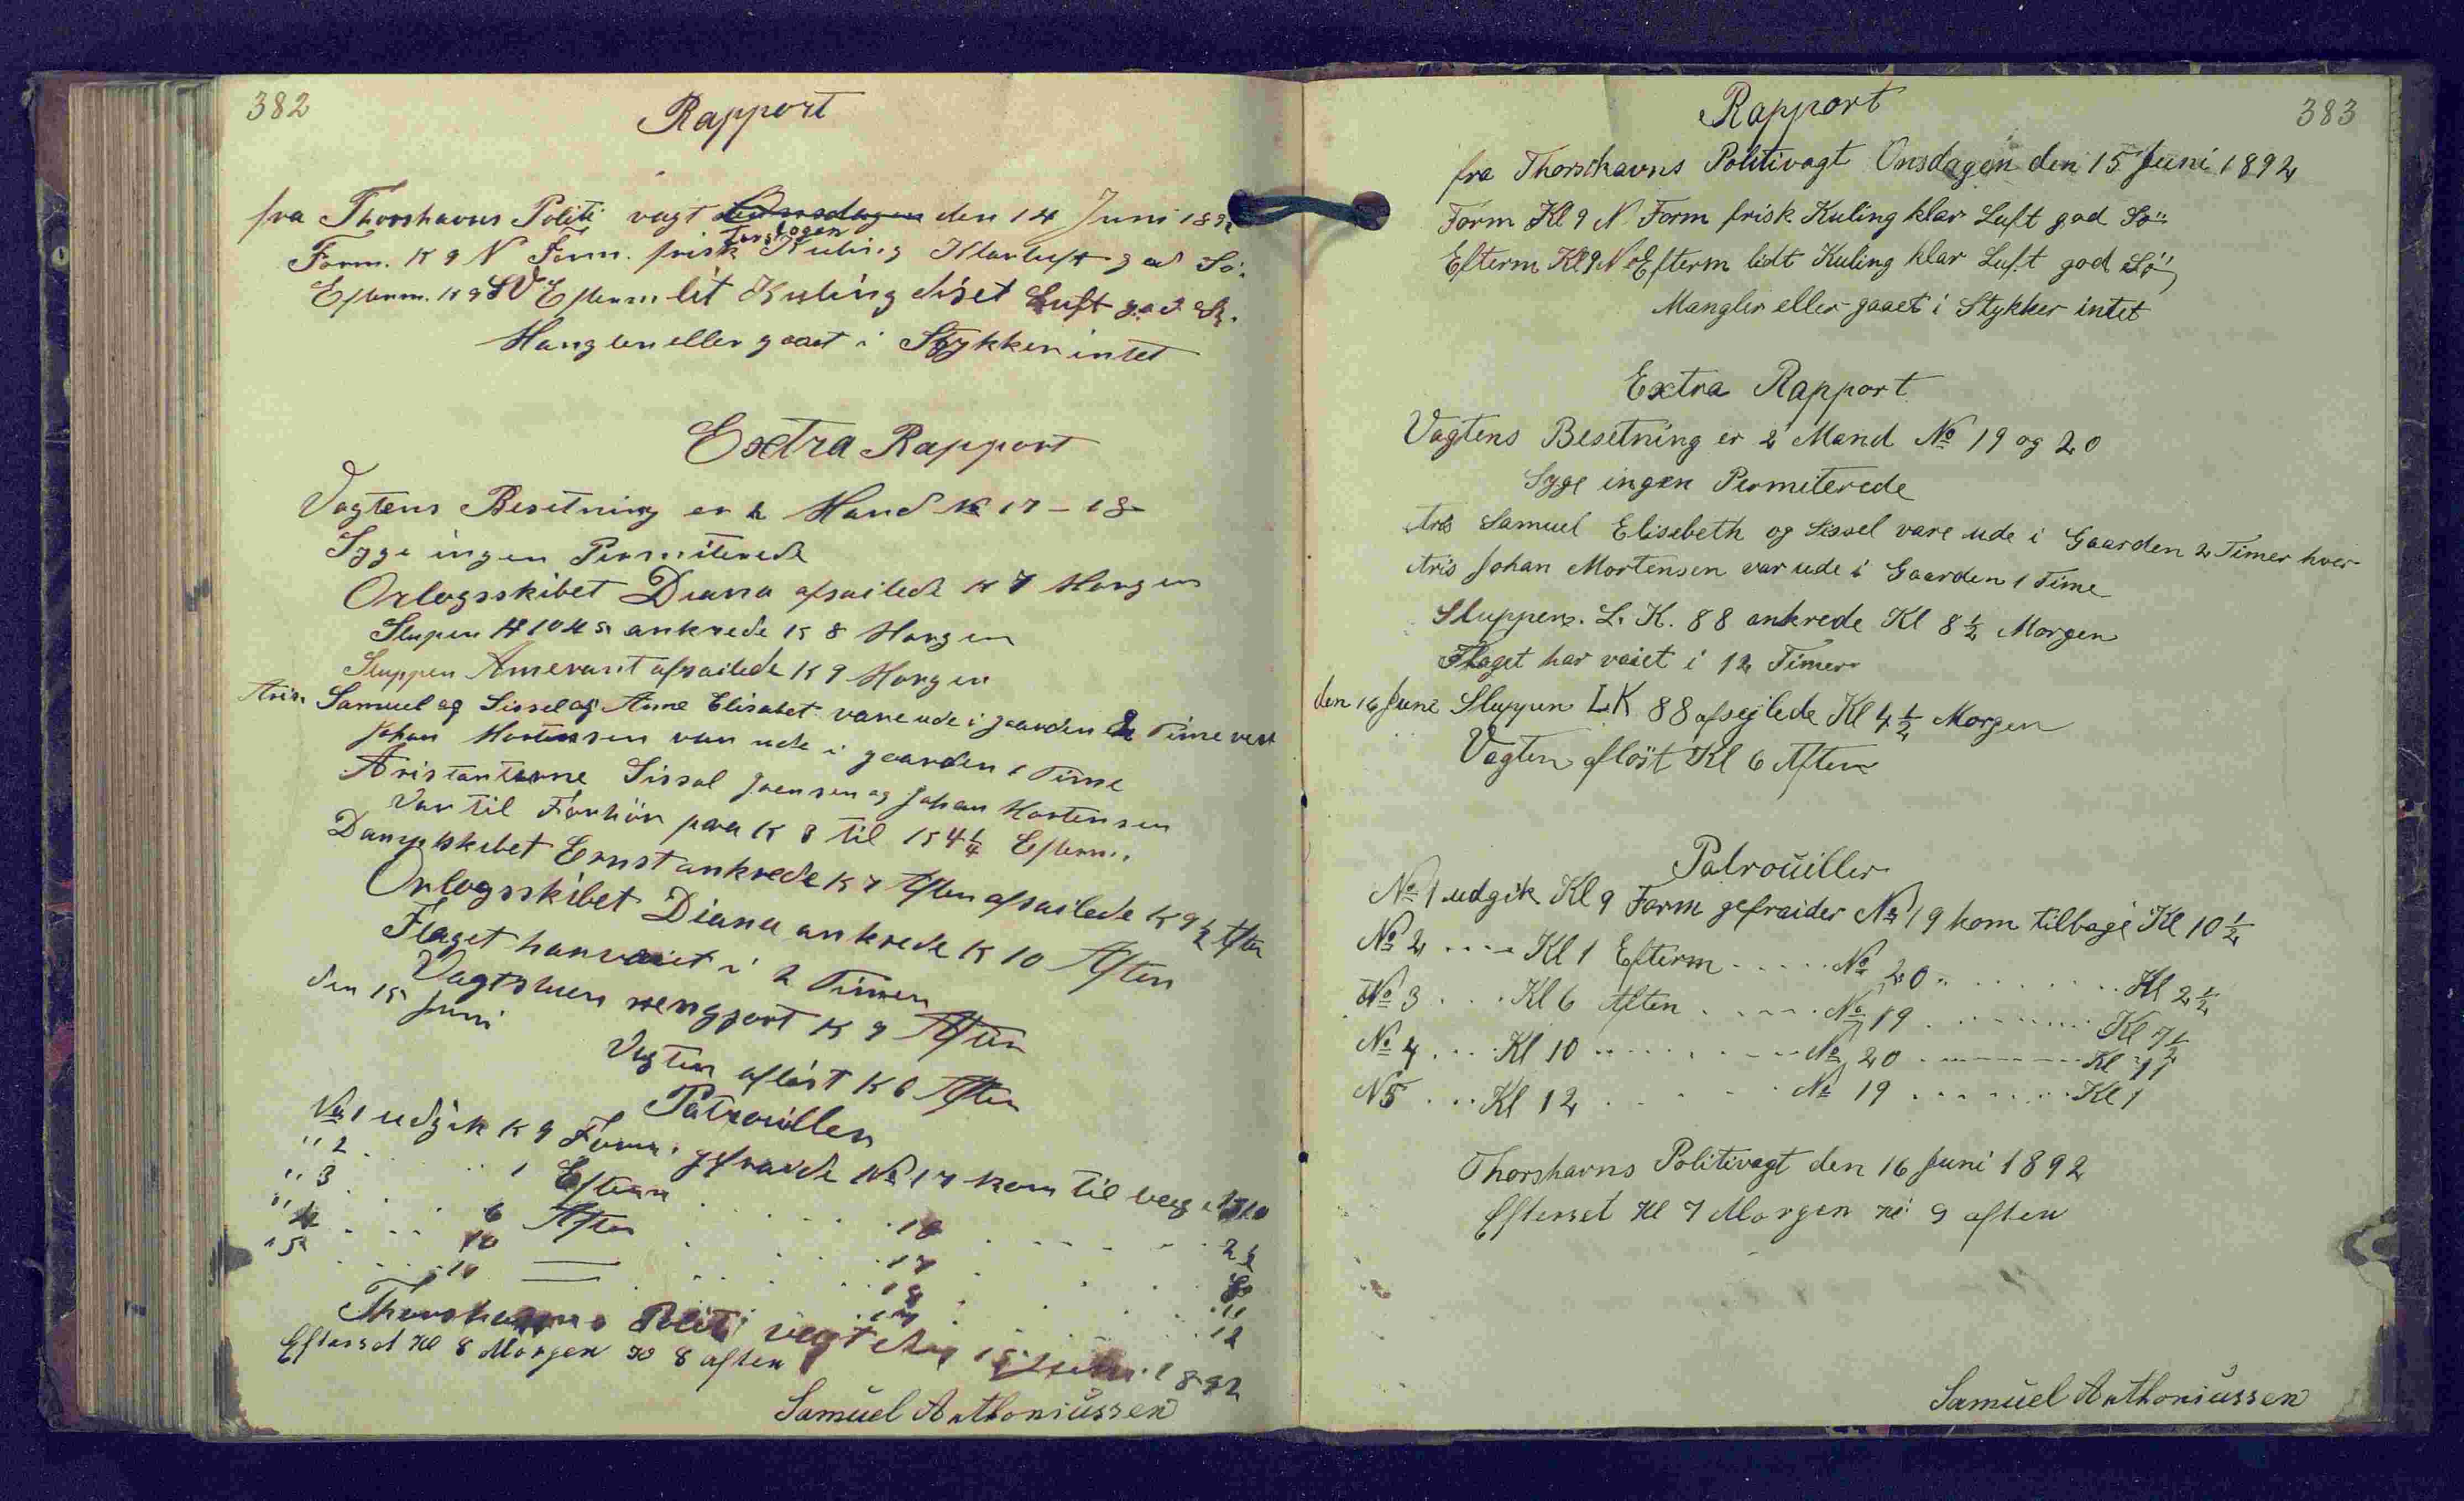 382
Rapport
fra Thorshavns Politi vagt den 14 Juni 189
Tors dagen
Form. K 9 N Form. frisk Kuling Klarluft god Sö.
Efterm. K 9 SV Efterm lit Kuling diset Luft god Sö.
Mangler eller gaaet i Stykker intet
Extra Rapport
Vagtens Besetning er 2 Mand No 17 - 18
Syge ingen Permiterede
Orlogsskibet Diana afsailede K 7 Morgen
Slupen H 1045 ankrede K 8 Morgen
Sluppen Amerant afsailede K 9 Morgen
Aris. Samuel og Sissel og Anne Elisabet vare ude i gaarden 2 Time vert
Johan Mortensen var ude i gaarden 1 Time
Aristanterne Sissal Joensen og Johan Mortensen
Var til Forhör paa K 3 til K 4 1/4 Efterm.
Dampskibet Ernst ankrede K 7 Aften afsailede K 9 1/2 Aften
Orlogsskibet Diana ankrede K 10 Aften
Flaget har vaiet i 2 Timer
Vagtstuen rengjort K 9 Aften
den 15 Juni
Vagten aflöst K 6 Aften
Patrouiller
No 1 udgik K 9 Form. gefraide No 17 kom til bag K 10
" 2 . . . 1 Efterm . . . 18 . . . 2 1/2
" 3 . . . 6 Aften . . . 17 . . . 8
" 4 . . . 10 — . . . 18 . . . 11
" 5 . . . 11 — . . . 17 . . . 12
Thorshavns Politi vagt den 15 Juni 1892
Efterset Kl 8 Morgen Kl 8 aften
Samuel Anthoniussen
383
Rapport
fra Thorshavns Politivagt Onsdagen den 15 Juni 1892
Form Kl 9 N Form frisk Kuling klar Luft god Sö
Efterm Kl 9 N Efterm lidt Kuling klar Luft god Sö
Mangler eller gaaet i Stykker intet
Extra Rapport
Vagtens Besetning er 2 Mand No 19 og 20
Syge ingen Permiterede
Aris Samuel Elisebeth og Sissel vare ude i Gaarden 2 Timer hver
Aris Johan Mortensen var ude i Gaarden 1 Time
Sluppen. L. K. 88 ankrede Kl 8 1/2 Morgen
Flaget har vaiet i 12 Timer
den 16 June Sluppen LK 88 afsejlede Kl 4 1/2 Morgen
Vagten aflöst Kl 6 Aften
Patrouiller
No 1 udgik Kl 9 Form gefraider No 19 kom tilbage Kl 10 1/2
No 2 . . . . Kl 1 Efterm . . . . . No 20 . . . . . . . . Kl 2 1/2
No 3 . . . Kl 6 Aften . . . . . No 19 . . . . . . . Kl 7 1/2
No 4 . . . Kl 10 . . . . . . . No 20 . . . . . . . Kl 11
N 5 . . . Kl 12 . . . . No 19 . . . . . . . Kl 1
Thorshavns Politivagt den 16 Juni 1892
Efterset Kl 7 Morgen Kl 9 aften
Samuel Anthoniussen